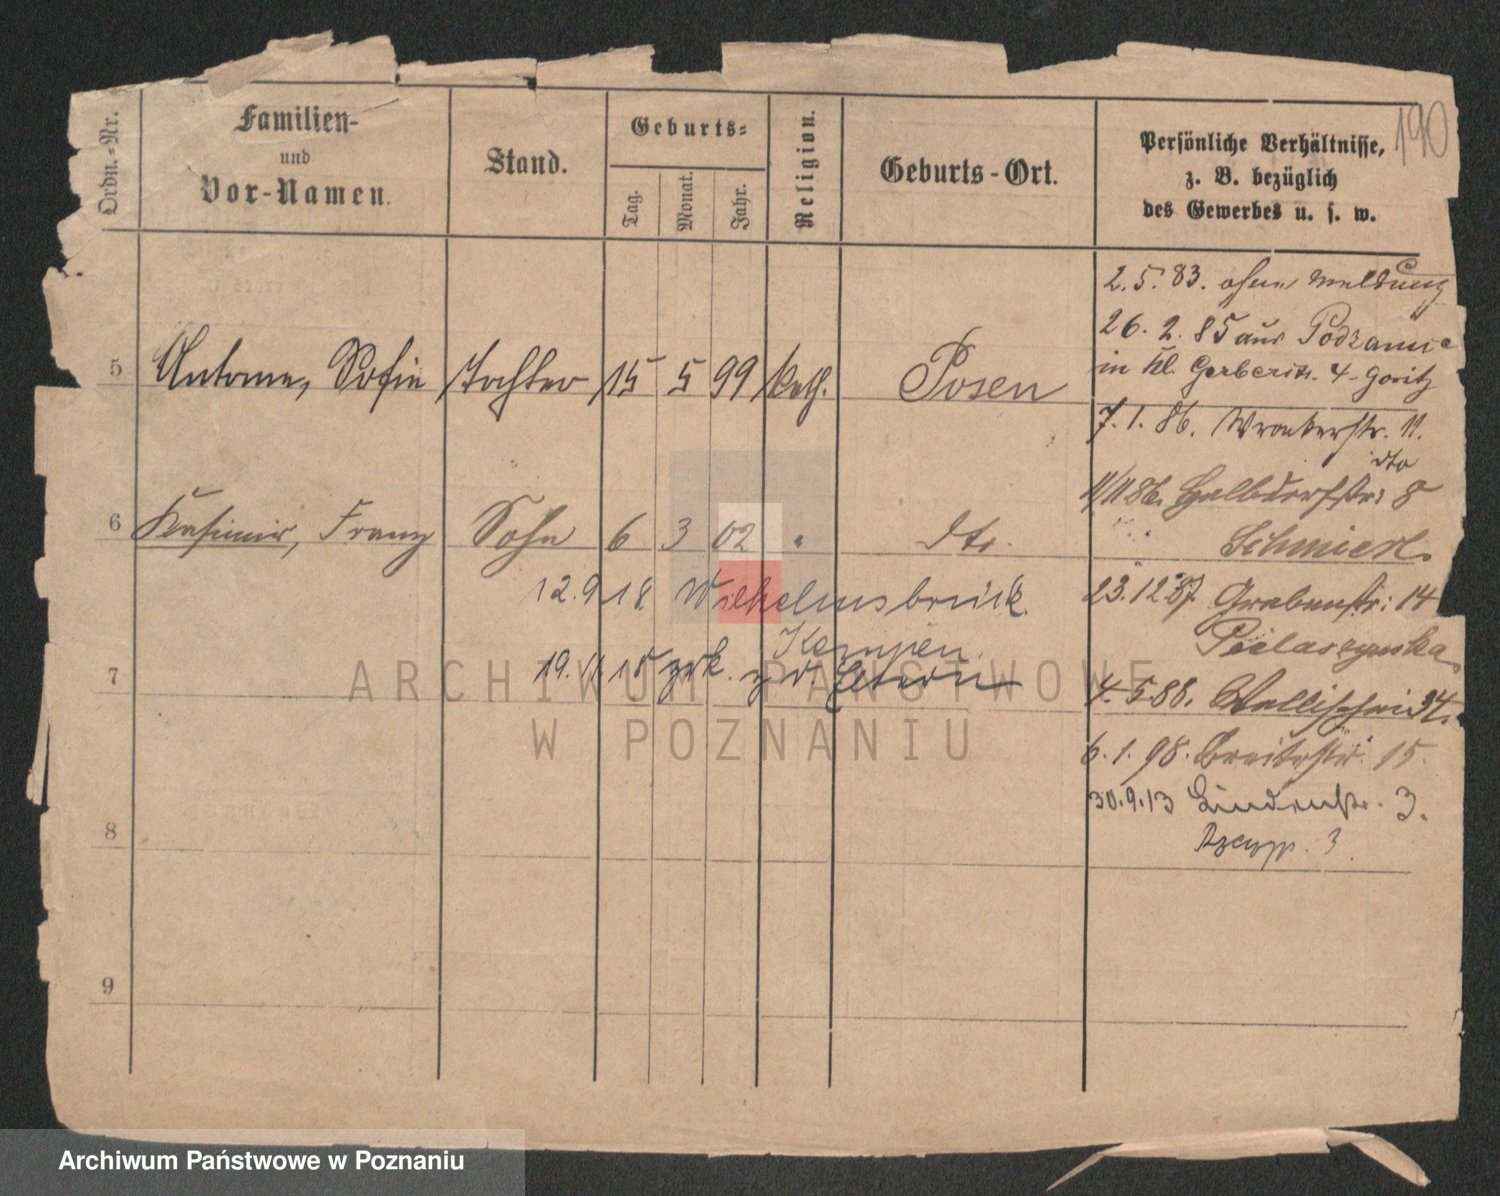 190
Ordn.-Nr.
Familien-
und
Vor-Namen.
Stand.
Geburts-
Tag.
Monat.
Jahr.
Religion.
Geburts-Ort.
Persönliche Verhältnisse,
z. B. bezüglich
des Gewerbes u. s. w.
5 Antonie, Sofie Tochter 15 5 99 kath. Posen
6 Kasimir, Franz Sohn 6 3 02 " dto.
12.9.18 Wilhelmsbrück
Kempen
19.11.18 zrk. zu Eltern
7
8
9
2.5.83. ohne Meldung
26.2.85 aus Podzamce
in Kl. Gerberstr. 4 Goritz
7.1.86. Wronkerstr. 11.
dto
11/11 86. Halbdorfstr: 8
23.12.87 Grabenstr: 14
4.5.88. Wallischei 34.
6.1.98. Breitestr. 15.
30.9.13 Lindenstr. 3.
3
ARCHIWUM PAŃSTWOWE
W POZNANIU
Archiwum Państwowe w Poznaniu